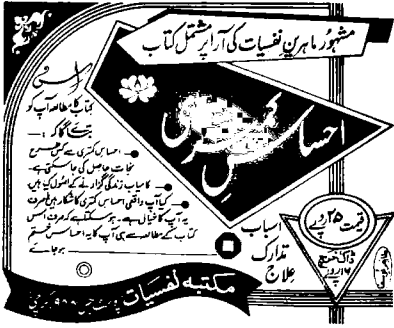 مشہور ماہرینِ نفسیات کی آرا پر مشتمل کتاب
احساسِ کمتری
اس
کتاب کا مطالعہ آپ کو
بتائے گا کہ :-
احساسِ کمتری سے کس طرح
نجات حاصل کی جا سکتی ہے۔
کامیاب زندگی گزارنے کے اصول کیا ہیں
کیا آپ واقعی احساسِ کمتری کا شکار ہیں یا صرف
یہ آپ کا خیال ہے۔ ہو سکتا ہے کہ صرف اس
کتاب کے مطالعہ سے ہی آپ کا یہ احساس ختم
ہو جائے
اسباب
تدارک
علاج
قیمت ۲۵ روپے
ڈاک خرچ
۱۶ روپے
مکتبہ نفسیات پوسٹ بکس ۹۴۴ کراچی